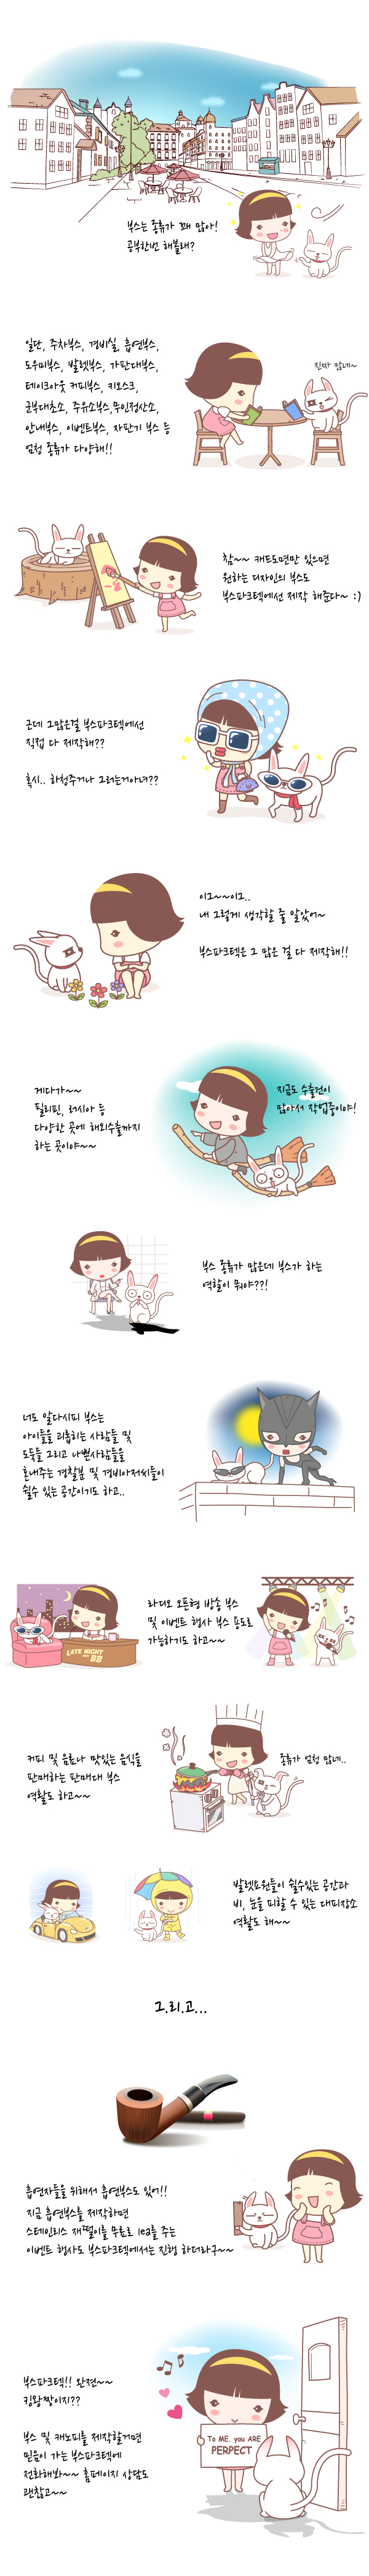 부스는 종류가 꽤 많아!
공부한번 해볼래?
일단, 주차부스, 경비실, 흡연부스,
도우미부스, 발렛부스, 가판대부스,
테이크아웃 커피부스, 키오스크,
군부대초소, 주유소부스, 무인정산소,
안내부스, 이벤트부스, 자판기 부스 등
엄청 종류가 다양해!!
진짜 많네~
참~~ 캐드도면만 있으면
원하는 디자인의 부스도
부스파크텍에선 제작 해준다~ :)
근데 그많은걸 부스파크텍에선
직접 다 제작해??
혹시.. 하청주거나 그러는거아녀??
이그~~이그..
내 그렇게 생각할 줄 알았어~
부스파크텍은 그 많은 걸 다 제작해!!
게다가~~
필리핀, 러시아 등
다양한 곳에 해외수출까지
하는 곳이야~~
지금도 수출건이
많아서 작업중이야!
부스 종류가 많은데 부스가 하는
역할이 뭐야??!
너도 알다시피 부스는
아이들을 괴롭히는 사람들 및
도둑들 그리고 나쁜사람들을
혼내주는 경찰분 및 경비아저씨들이
쉴수 있는 공간이기도 하고..
LATE NIGHT
with BB
라디오 오픈형 방송 부스
및 이벤트 행사 부스 용도로
가능하기도 하고~~
커피 및 음료나 맛있는 음식을
판매하는 판매대 부스
역활도 하고~~
종류가 엄청 많네..
발렛요원들이 쉴수있는 공간과
비, 눈을 피할 수 있는 대피장소
역활도 해~~
그.리.고...
흡연자들을 위해서 흡연부스도 있어!!
지금 흡연부스를 제작하면
스테인리스 재떨이를 무료로 1ea를 주는
이벤트 행사도 부스파크텍에서는 진행 하더라구~~
부스파크텍!! 완전~~
킹왕짱이지??
To ME. you ARE
PERPECT
부스 및 캐노피를 제작할거면
믿음이 가는 부스파크텍에
전화해봐~~ 홈페이지 상담도
괜찮고~~